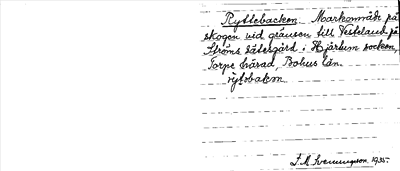 Ryttebacken Markområde på
skogen vid gränsen till Vesteland på
Ströms sätesgård i Hjärtum socken,
Torpe härad, Bohus län.
rÿtəbakən
F. M. Svenungsson 1935.